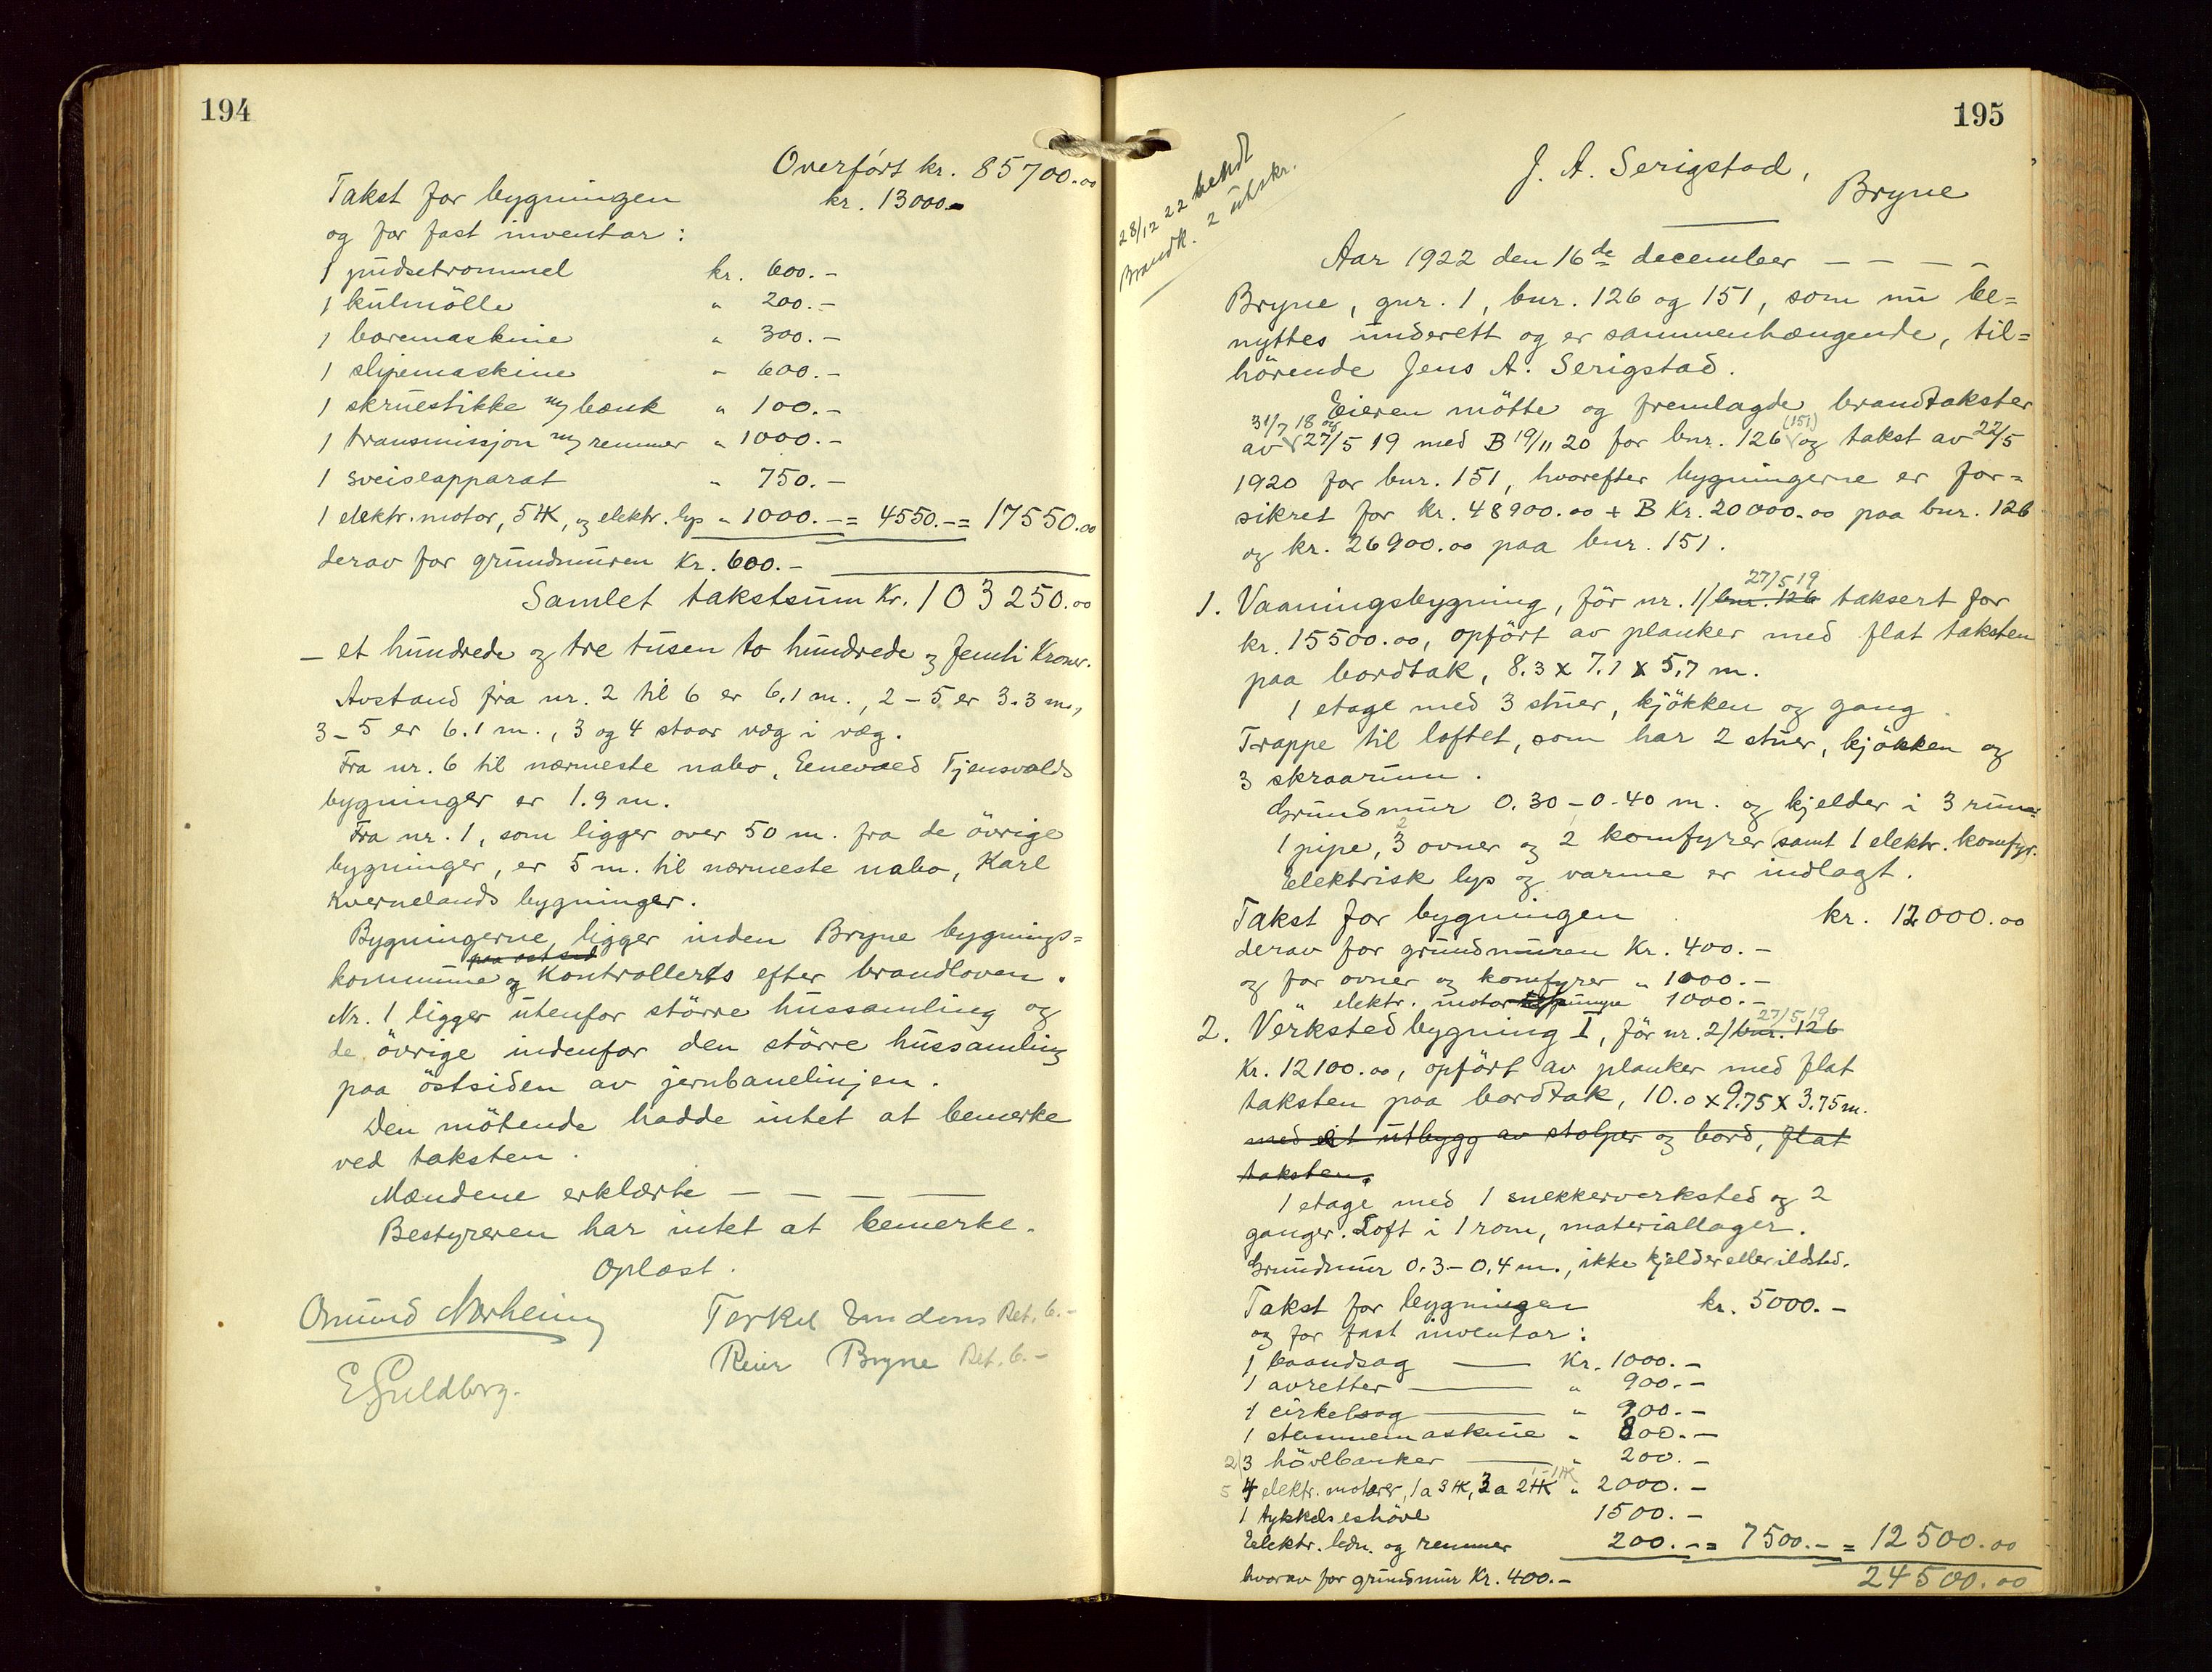 194
Overført kr. 85700.00
Takst for bygningen kr. 13000.-
og for fast inventar:
1 pudsetrommel kr. 600.-
1 kulmölle " 200.-
1 boremaskine " 300.-
1 slipemaskine " 600.-
1 skruestikke m/ bænk " 100.-
1 transmissjon m/ remmer " 1000.-
1 sveiseapparat " 750.-
1 elektr. motor, 5 HK, og elektr. lys " 1000.- = 4550.- = 17550.00
derav for grundmuren Kr. 600.-
Samlet takstsum Kr. 103250.00
- et hundrede og tre tusen to hundrede og femti Kroner.
Avstand fra nr. 2 til 6 er 6,1 m., 2-5 er 3.3 m.,
3-5 er 6.1 m., 3 og 4 staar væg i væg.
Fra nr. 6 til nærmeste nabo, Eenevald Tjensvolds
bygninger er 1.9 m.
Fra nr. 1, som ligger over 50 m. fra de övrige
bygninger, er 5 m. til nærmeste nabo, Karl
Kvernelands bygninger.
Bygningerne ligger inden Bryne bygnings=
paa östsid
kommune og Kontrollerts efter brandloven.
Nr. 1 ligger utenfor större hussamling og
de övrige indenfor den större hussamling
paa östsiden av jernbanelinjen.
Den mötende hadde intet at bemerke
ved taksten.
Mændene erklærte - - - -
Bestyreren har intet at bemerke.
Oplæst.
Omund Nærheim Terkel Undems Bet. 6.-
Reier Bryne Bet. 6.-
E. Guldbrg.
195
28/12 22 sendt
Brandk. 2 utskr.
J. A. Serigstad,
Bryne
Aar 1922 den 16de december - - - -
Bryne, gnr. 1, bnr. 126 og 151, som nu be=
nyttes underett og er sammenhængende, til=
hörende Jens A. Serigstad.
Eieren mötte og fremlagde brandtakster
31/7 18 og (151)
av 27/5 19 med B 19/11 20 for bnr. 126 og takst av 22/5
1920 for bnr. 151, hvorefter bygningerne er for=
sikret for kr. 48900.00 + B Kr. 20000.00 paa bnr. 126
og kr. 26900.00 paa bnr. 151.
27/5 19
1. Vaaningsbygning, för nr. 1/ bnr. 126 taksert for
kr. 15500.00, opfört av planker med flat taksten
paa bordtak, 8.3 x 7.1 x 5.7 m.
1 etage med 3 stuer, kjökken og gang.
Trappe til loftet, som har 2 stuer, kjökken og
3 skraarum.
Grundmur 0.30-0.40 m. og kjelder i 3 rum.
2
1 pipe, 3 ovner og 2 komfyrer (samt 1 elektr. komfyr).
Elektrisk lys og varme er indlagt.
Takst for bygningen kr. 12000.00
derav for grundmuren Kr. 400.-
og for ovner og komfyrer " 1000.-
" elektr. motor til pumpe 1000.-
27/5 19
2. Verksted bygning I, för nr. 2/ bnr. 126
Kr. 12100.00, opfört av planker med flat
taksten paa bordtak, 10.0 x 9.75 x 3.75 m.
med et utbygg av stolper og bord, flat
taksten.
1 etage med 1 snekkerverksted og 2
ganger. Loft i 1 rom, materiallager.
Grundmur 0.3-0.4 m., ikke kjelder eller ildsted.
Takst for bygningen kr. 5000.-
og for fast inventar:
1 baandsag Kr. 1000.-
1 avretter " 900.-
1 cirkelsag " 900.-
1 stemmemaskine " 800.-
2) 3 hövlbænker " 200.-
1-1 HK
5 4 elektr. motorer, 1 a 3 HK, 3 a 2 HK " 2000.-
1 tykkelseshövl 1500.-
Elektr. ledn. og remmer 200.- = 7500.- = 12500.00
hvorav for grundmur Kr. 400.- 24500.00